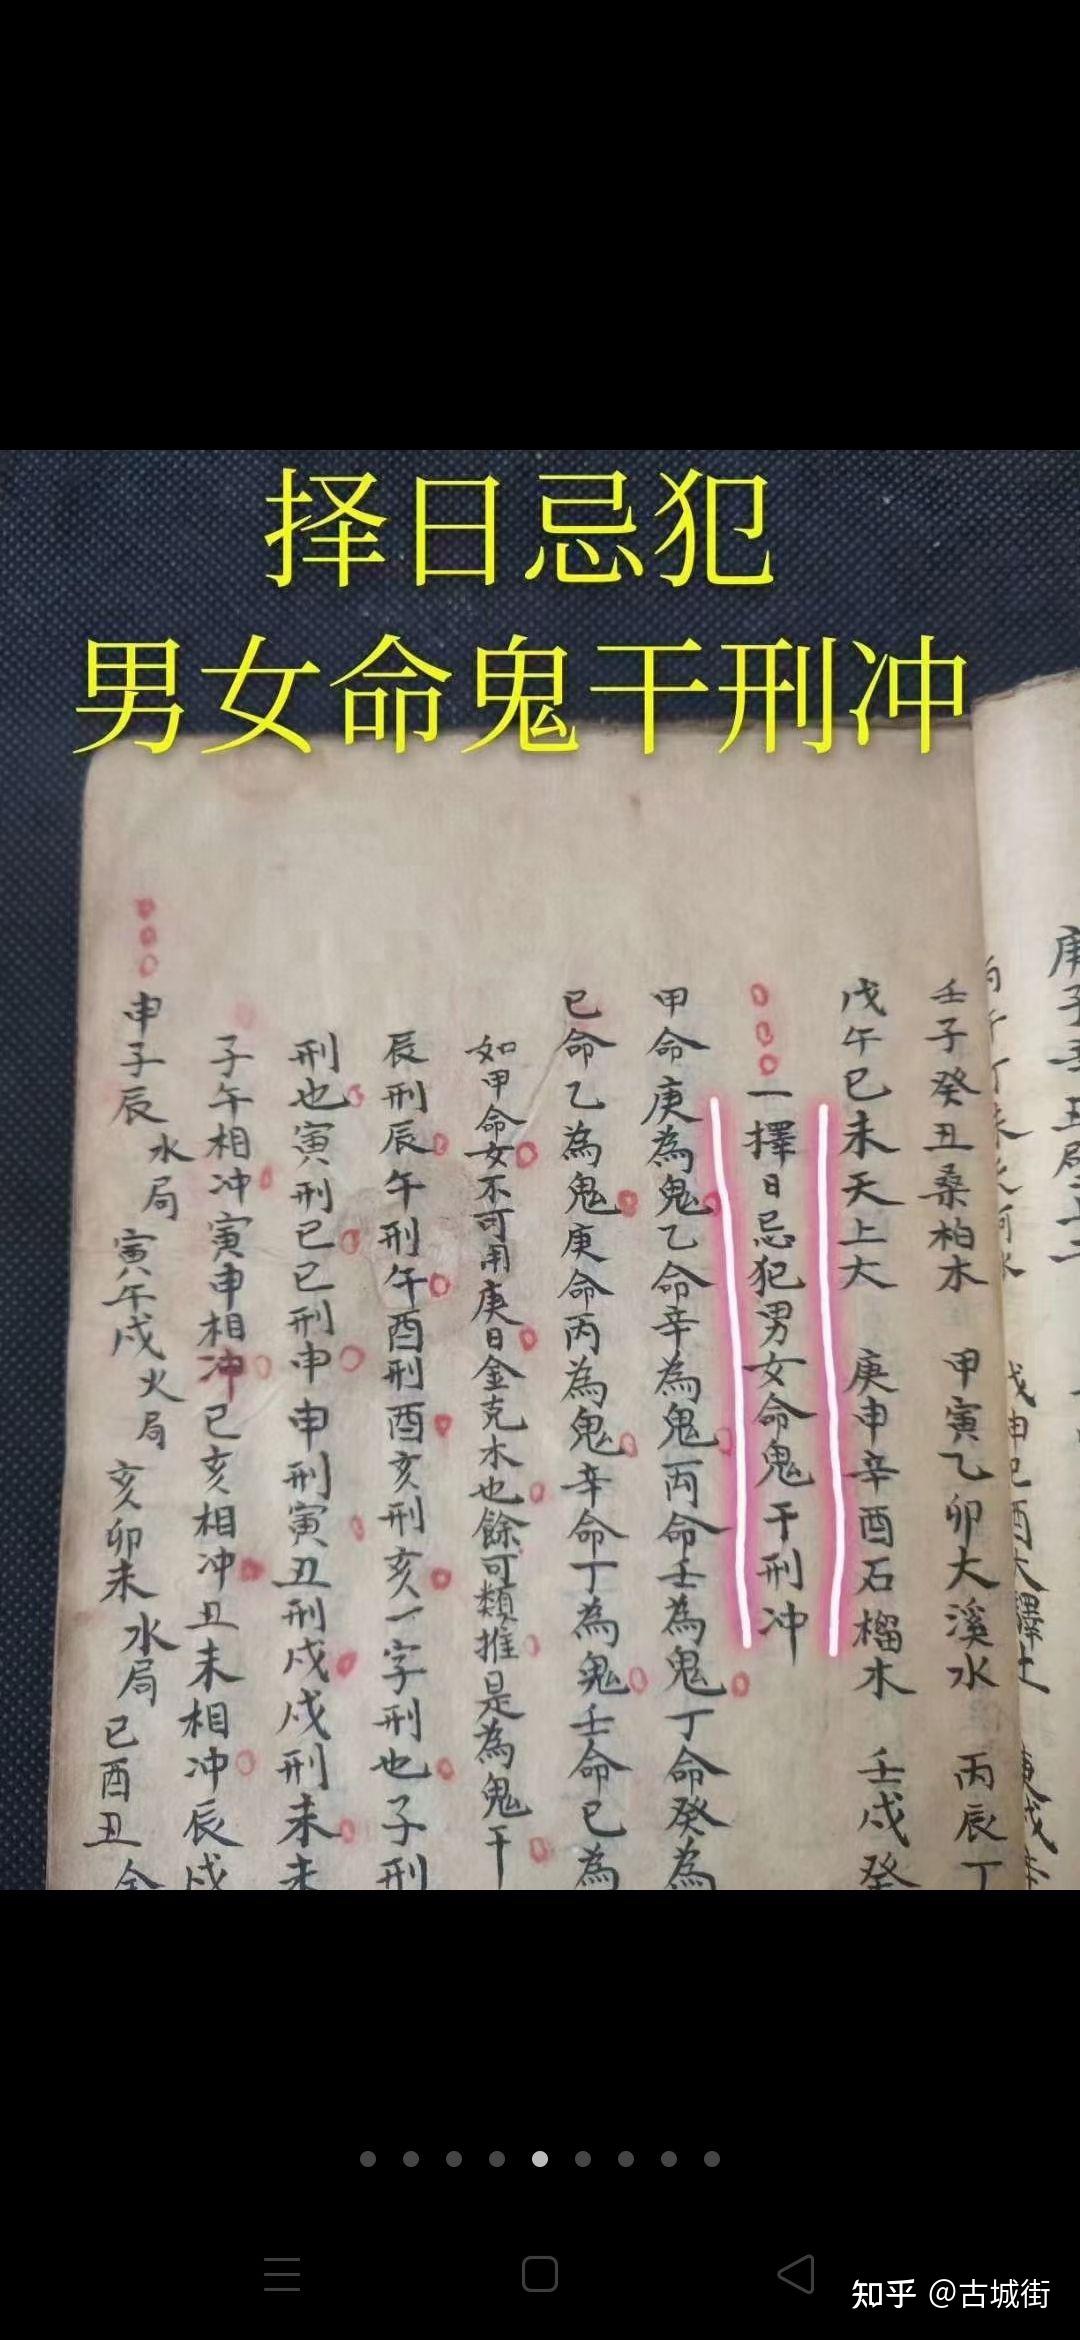 择日忌犯
男女命鬼干刑冲
壬子癸丑桑柏木 甲寅乙卯大溪水 丙辰丁
戊午巳未天上大 庚申辛酉石榴木 壬戌癸
一擇日忌犯男女命鬼干刑冲
甲命庚為鬼乙命辛為鬼丙命壬為鬼丁命癸為
已命乙為鬼庚命丙為鬼辛命丁為鬼壬命已為
如甲命女不可用庚日金克木也餘可類推是為鬼干
辰刑辰午刑午酉刑酉亥刑亥一字刑也子刑
刑也寅刑巳巳刑申申刑寅丑刑戌戌刑未未
子午相冲寅申相冲巳亥相冲丑未相冲辰戌
申子辰水局寅午戌火局亥卯未水局巳酉丑金
知乎 @古城街